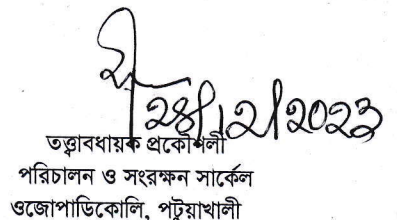 ২৪/১২/২০২৩
তত্ত্বাবধায়ক প্রকৌশলী
পরিচালন ও সংরক্ষন সার্কেল
ওজোপাডিকোলি, পটুয়াখালী